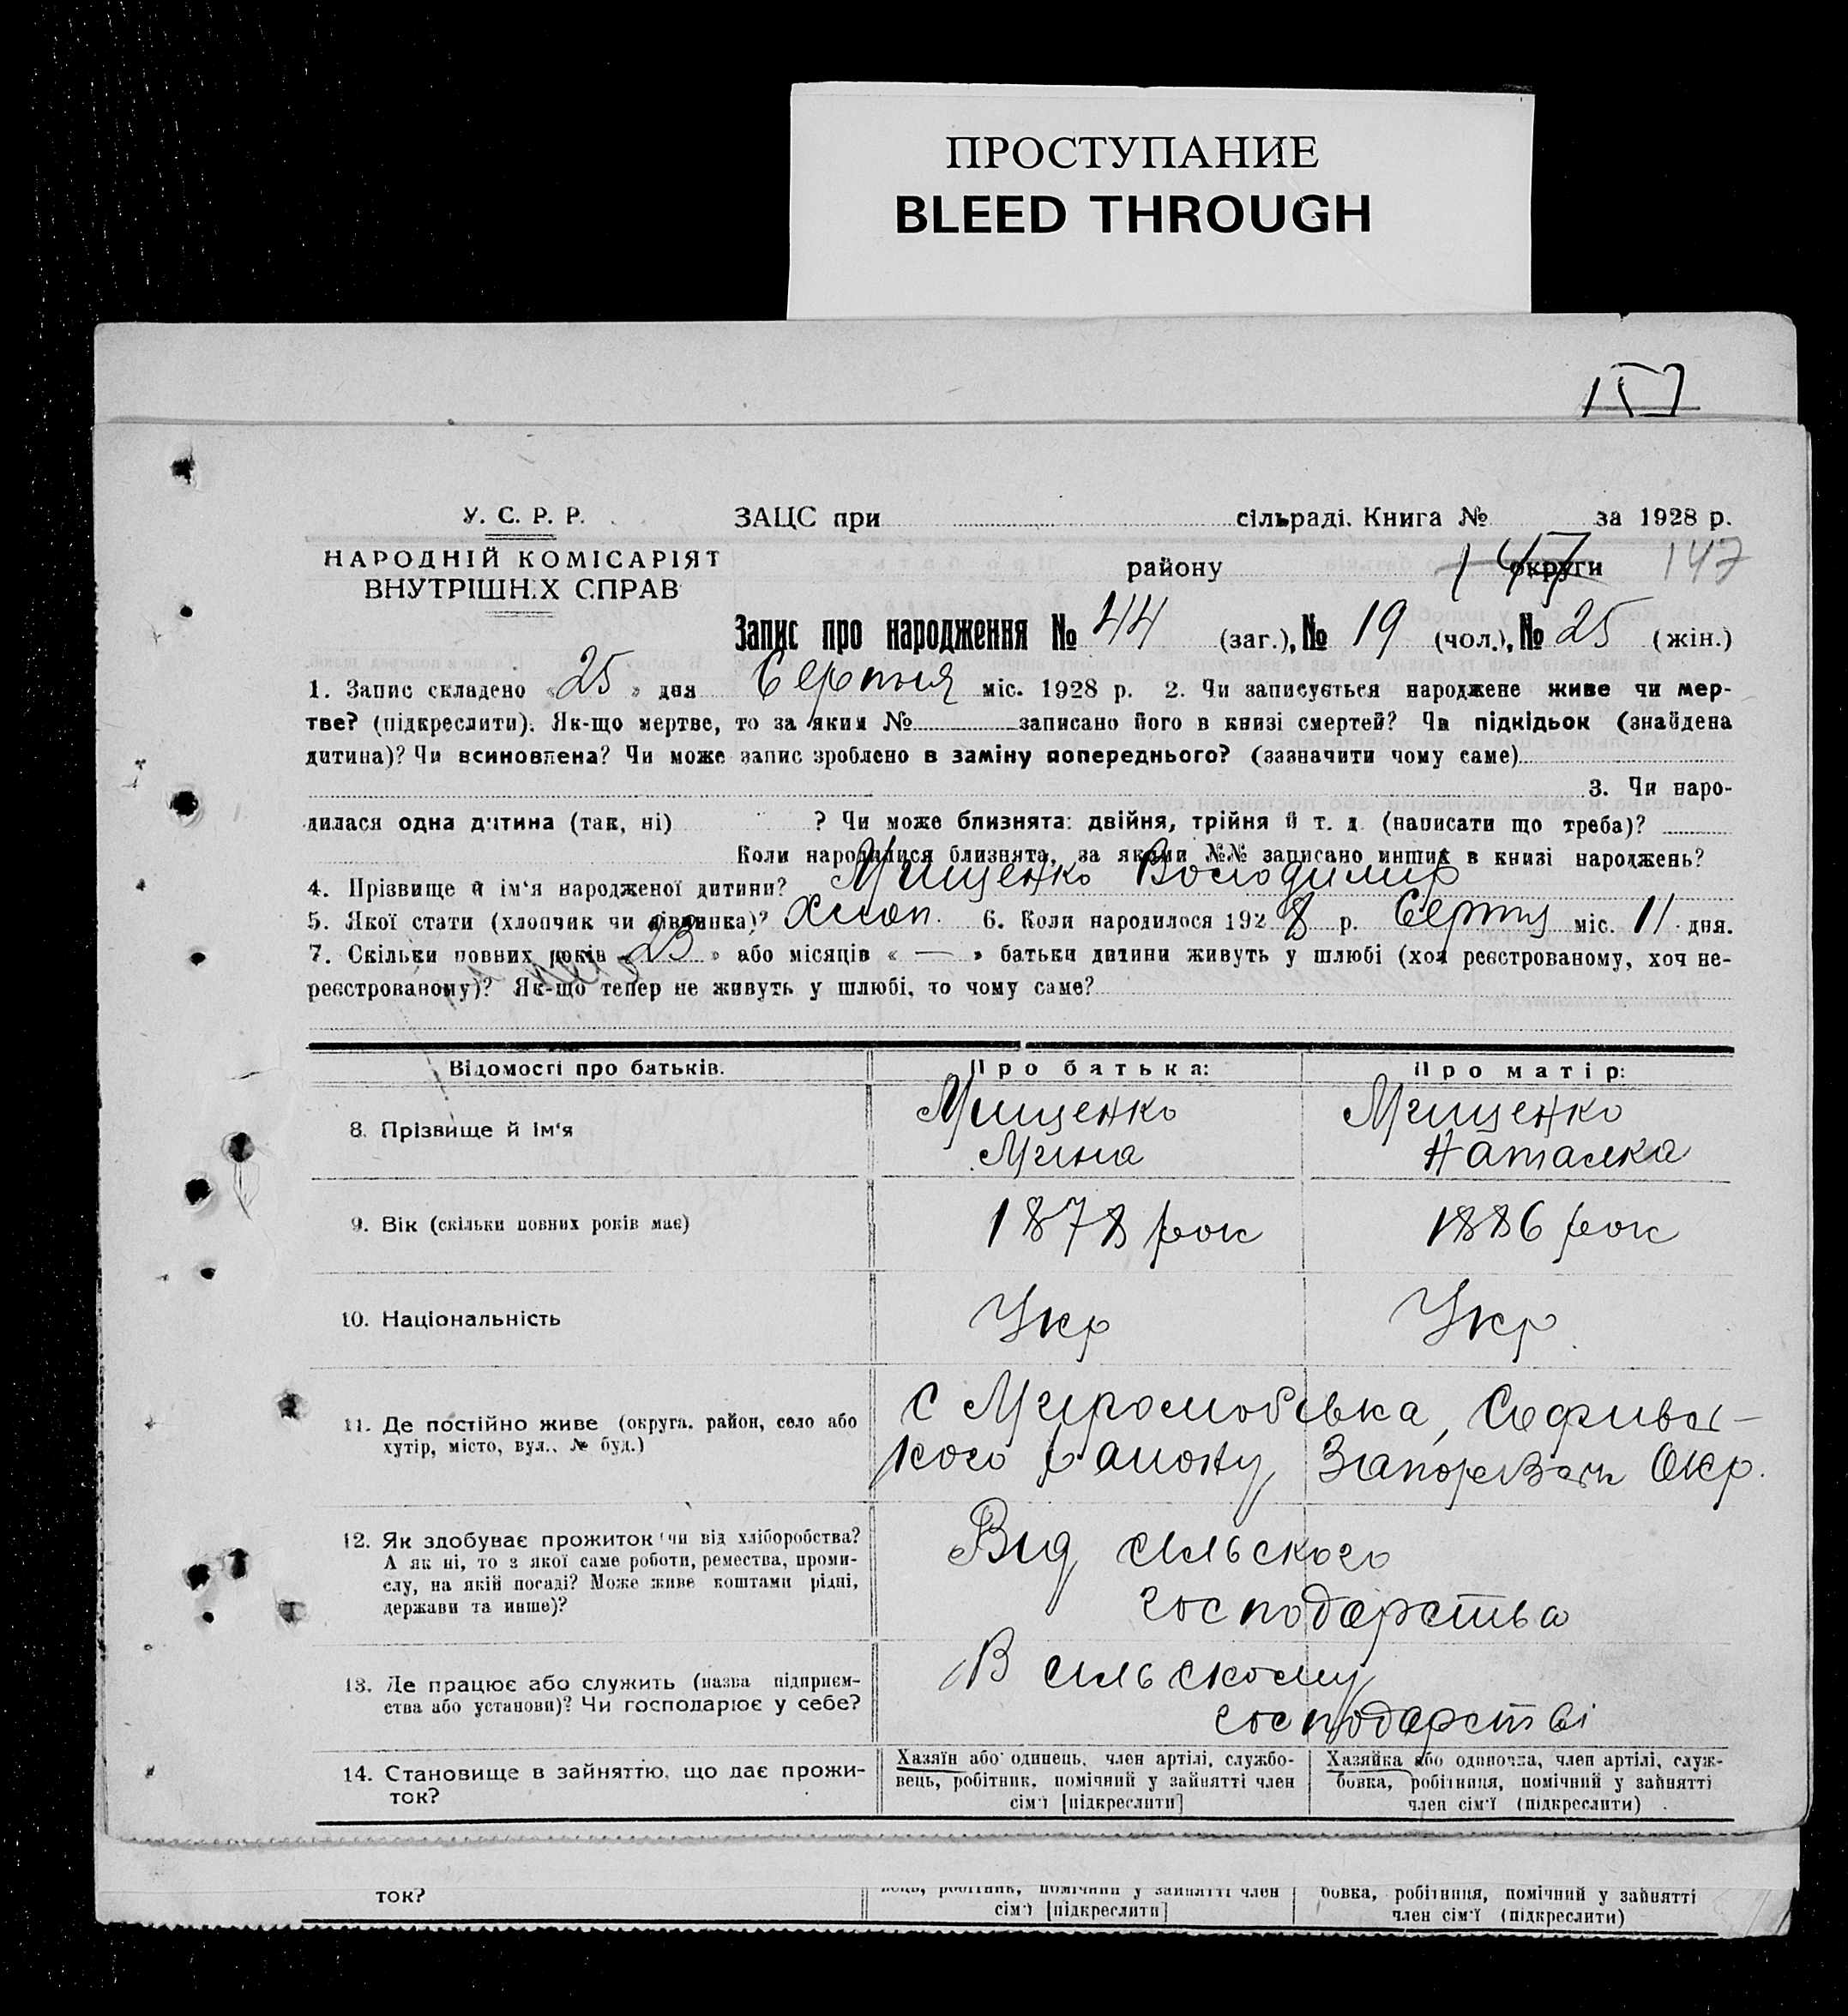 ПРОСТУПАНИЕ
BLEED THROUGH
У. С. Р. Р.
НАРОДНІЙ КОМІСАРІЯТ
ВНУТРІШНІХ СПРАВ
ЗАЦС при сільраді. Книга № за 1928 р.
району 147 округи 147
Запис про народження № 44 (заг.), № 19 (чол.), № 25 (жін.)
1. Запис складено «25» дня Серпня міс. 1928 р. 2. Чи записується народжене живе чи мер-
тве? (підкреслити). Як-що мертве, то за яким № записано його в книзі смертей? Чи підкідьок (знайдена
дитина)? Чи всиновлена? Чи може запис зроблено в заміну попереднього? (зазначити чому саме)
3. Чи наро-
дилася одна дитина (так, ні) ? Чи може близнята: двійня, трійня й т. д. (написати що треба)?
Коли народилися близнята, за якими №№ записано инших в книзі народжень?
4. Прізвище й ім'я народженої дитини? Мищенко Володимир
5. Якої стати (хлопчик чи дівчинка)? Хлоп. 6. Коли народилося 1928 р. Серпня міс. 11 дня.
7. Скільки повних років «23» або місяців « — » батьки дитини живуть у шлюбі (хоч реєстрованому, хоч не-
реєстрованому)? Як-що тепер не живуть у шлюбі, то чому саме?
Відомості про батьків. Про батька: Про матір:
8. Прізвище й ім'я Мищенко Мина Мищенко Наталка
9. Вік (скільки повних років має) 1878 рок 1886 рок
10. Національність Укр Укр.
11. Де постійно живе (округа, район, село або
хутір, місто, вул., № буд.)
С Миролюбівка, Софивсь-
кого району Запорізськ Окр.
12. Як здобуває прожиток (чи від хліборобства?
А як ні, то з якої саме роботи, ремества, проми-
слу, на якій посаді? Може живе коштами рідні,
держави та инше)?
Вид сильского
господарства
13. Де працює або служить (назва підприєм-
ства або установи)? Чи господарює у себе?
В сильскому
господарстві
14. Становище в зайняттю, що дає прожи-
ток?
Хазяїн або одинець, член артілі, службо-
вець, робітник, помічний у зайнятті член
сім'ї [підкреслити]
Хазяйка або одиночка, член артілі, служ-
бовка, робітниця, помічний у зайнятті
член сім'ї (підкреслити)
ток?
вець, робітник, помічний у зайнятті член
сім'ї [підкреслити]
бовка, робітниця, помічний у зайнятті
член сім'ї (підкреслити)